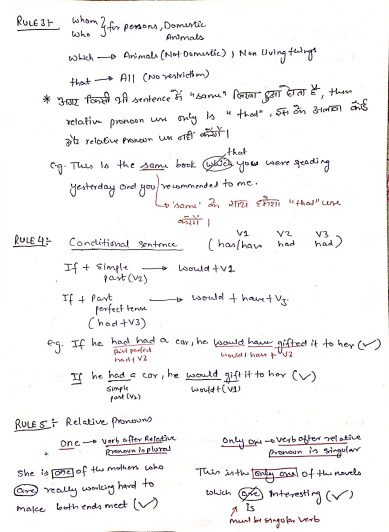 RULE 3:- whom } for persons, Domestic
who } Animals
which → Animals (Not Domestic) ; Non living things
that → All (No restriction)
* अगर किसी भी sentence में "same" लिखा हुआ होता है, then
relative pronoun use only is "that", इस के अलावा कोई
और relative pronoun use नहीं करेंगे।
that
eg. This is the same book which you were reading
yesterday and you recommended to me.
"same" के साथ हमेशा "that" use
करेंगे।
V1 V2 V3
RULE 4:- Conditional sentence (has/have had had)
If + Simple → would + V1
past (V2)
If + Past → would + have + V3
perfect tense
(had + V3)
eg. If he had had a car, he would have gifted it to her (✓)
past perfect would have + V3
had + V3
If he had a car, he would gift it to her (✓)
simple would + (V1)
past (V2)
RULE 5:- Relative Pronouns
one → verb after Relative
pronoun is plural
Only one → verb after relative
pronoun is singular
She is one of the mothers who
are really working hard to
make both ends meet (✓)
This is the only one of the novels
which are interesting (✓)
is
must be singular verb